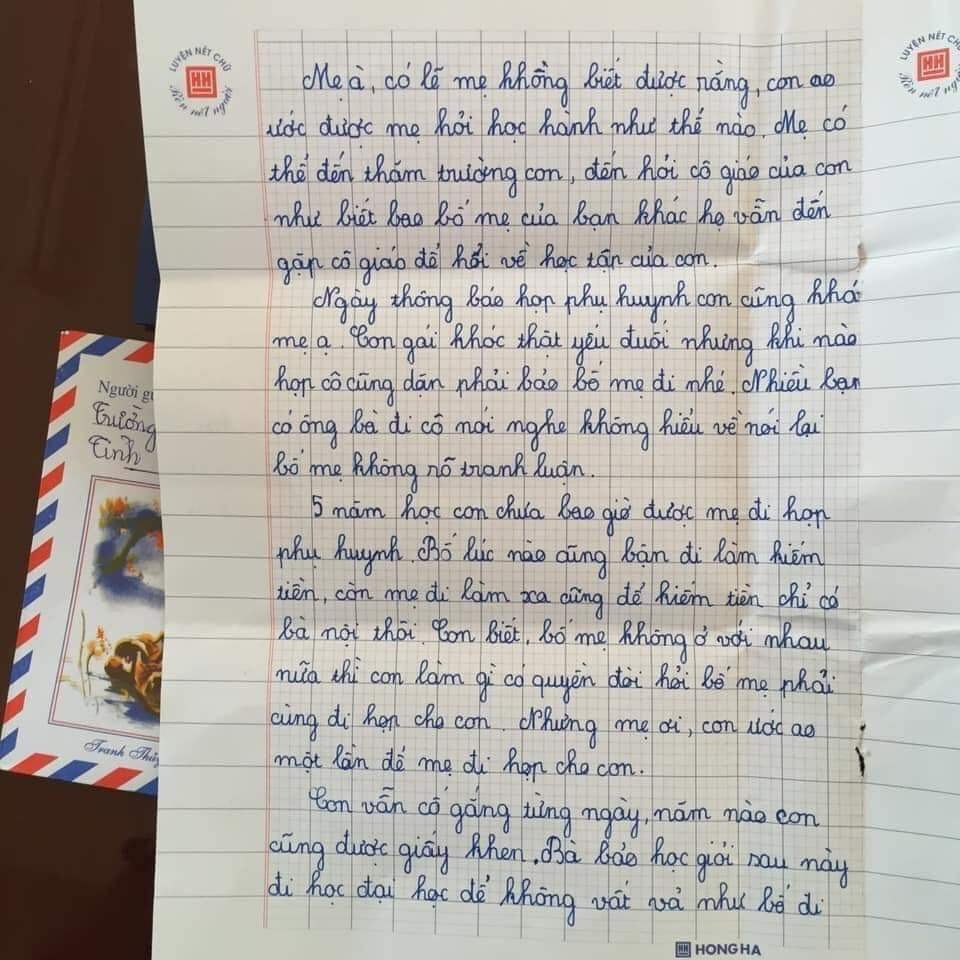 LUYỆN NẾT CHỮ
HH
Rèn nết người
LUYỆN NẾT CHỮ
HH
Rèn nết người
Mẹ à, có lẽ mẹ không biết được rằng, con ao
ước được mẹ hỏi học hành như thế nào. Mẹ có
thể đến thăm trường con, đến hỏi cô giáo của con
như biết bao bố mẹ của bạn khác họ vẫn đến
gặp cô giáo để hỏi về học tập của con.
Ngày thông báo họp phụ huynh con cũng khó
mẹ ạ. Con gái khóc thật yếu đuối nhưng khi nào
họp cô cũng dặn phải bảo bố mẹ đi nhé. Nhiều bạn
có ông bà đi cô nói nghe không hiểu về nói lại
bố mẹ không rõ tranh luận.
5 năm học con chưa bao giờ được mẹ đi họp
phụ huynh. Bố lúc nào cũng bận đi làm kiếm
tiền, còn mẹ đi làm xa cũng để kiếm tiền chỉ có
bà nội thôi. Con biết, bố mẹ không ở với nhau
nữa thì con làm gì có quyền đòi hỏi bố mẹ phải
cùng đi họp cho con. Nhưng mẹ ơi, con ước ao
một lần để mẹ đi họp cho con.
Con vẫn cố gắng từng ngày, năm nào con
cũng được giấy khen. Bà bảo học giỏi sau này
đi học đại học để không vất vả như bố đi
HH HONG HA
Người gử
Trường
Tinh
Tranh Thủy